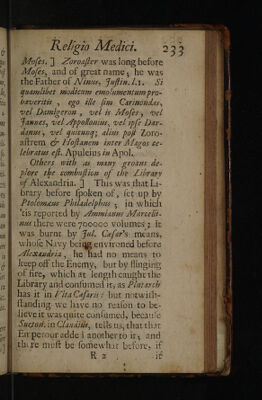 Religio Medici. 233
Moses. ] Zoroaster was long before
Moses, and of great name ; he was
the Father of Ninus, Justin. l. 1. Si
quamlibet modicum emolumentum pro-
baveritis , ego ille sim Carinondas,
vel Damigeron , vel is Moses, vel
Jannes, vel Appollonius, vel ipse Dar-
danus, vel quicunq; alius post Zoro-
astrem & Hostanem inter Magos ce-
lebratus est. Apuleius in Apol.
Others with as many groans de-
plore the combustion of the Library
of Alexandria. ] This was that Li-
brary before spoken of, set up by
Ptolomæus Philadelphus ; in which
'tis reported by Ammianus Marcelli-
nus there were 700000 volumes ; it
was burnt by Jul. Cæsar's means,
whose Navy being environed before
Alexandria, he had no means to
keep off the Enemy, but by flinging
of fire, which at length caught the
Library and consumed it, as Plutarch
has it in Vita Cæsaris: but notwith-
standing we have no reason to be-
lieve it was quite consumed, because
Sueton. in Claudius, tells us, that that
Emperour added another to it; and
there must be somewhat before, if
R 2 it